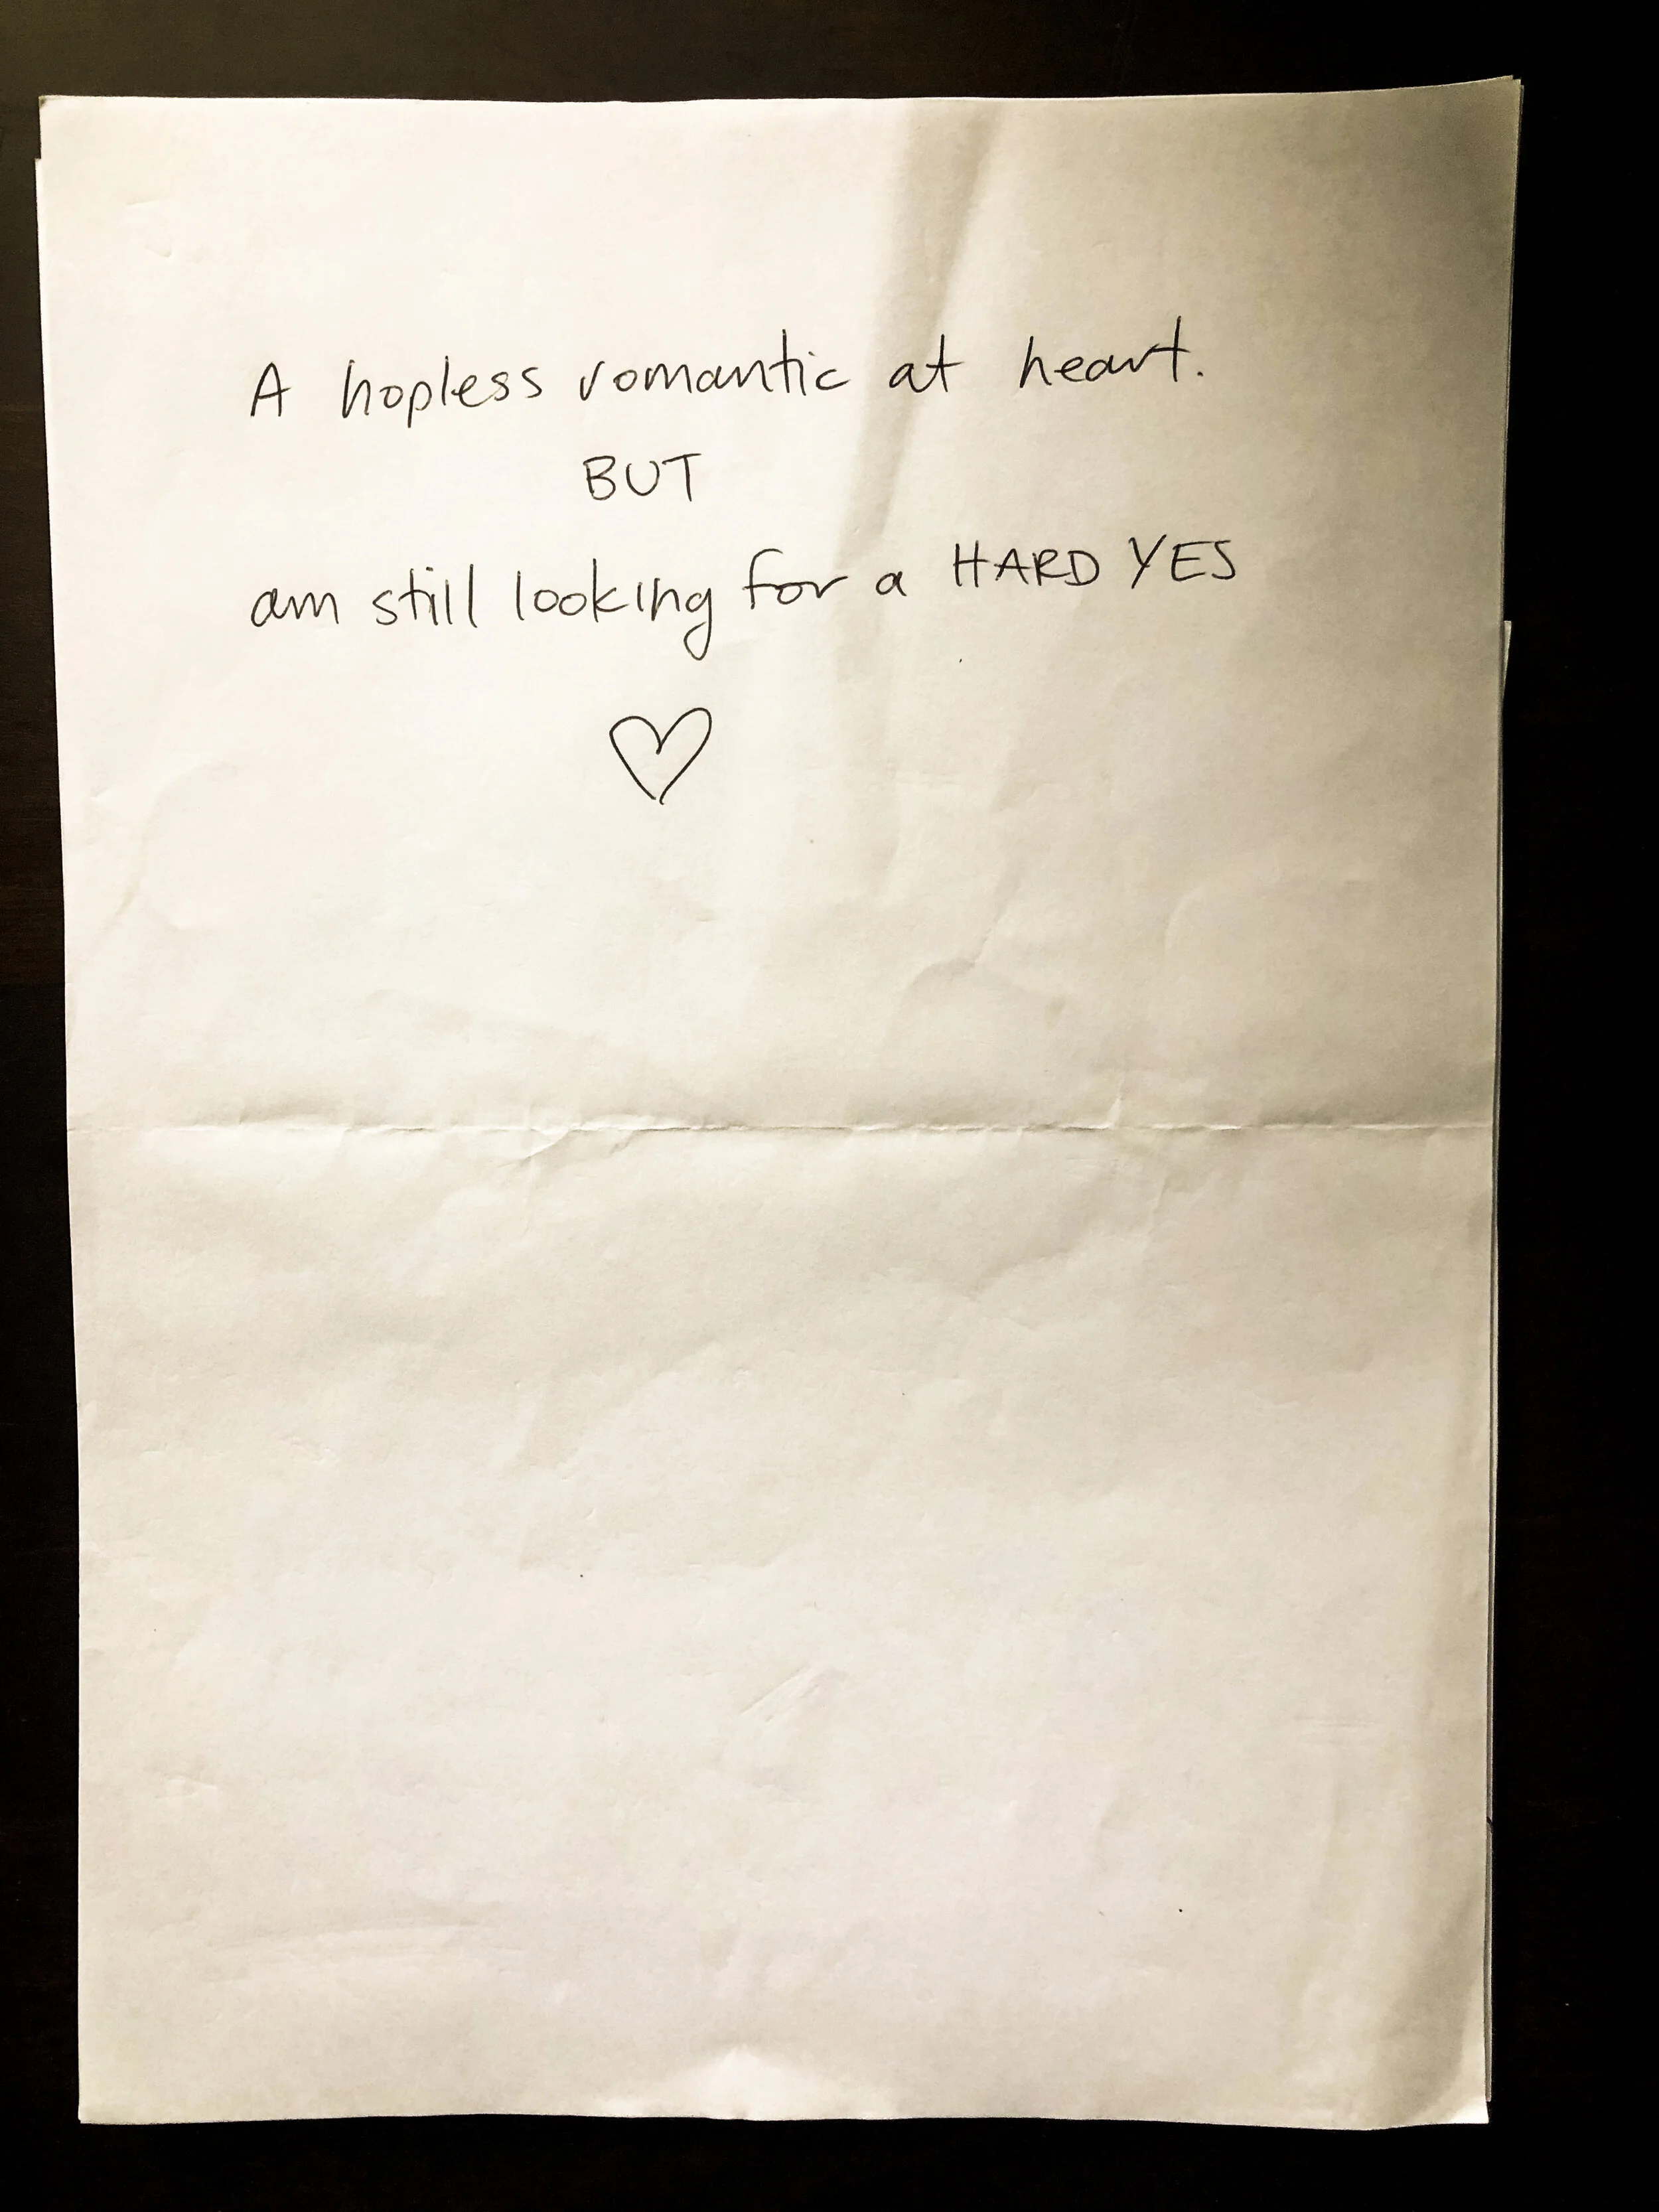 A hopless romantic at heart.
BUT
am still looking for a HARD YES